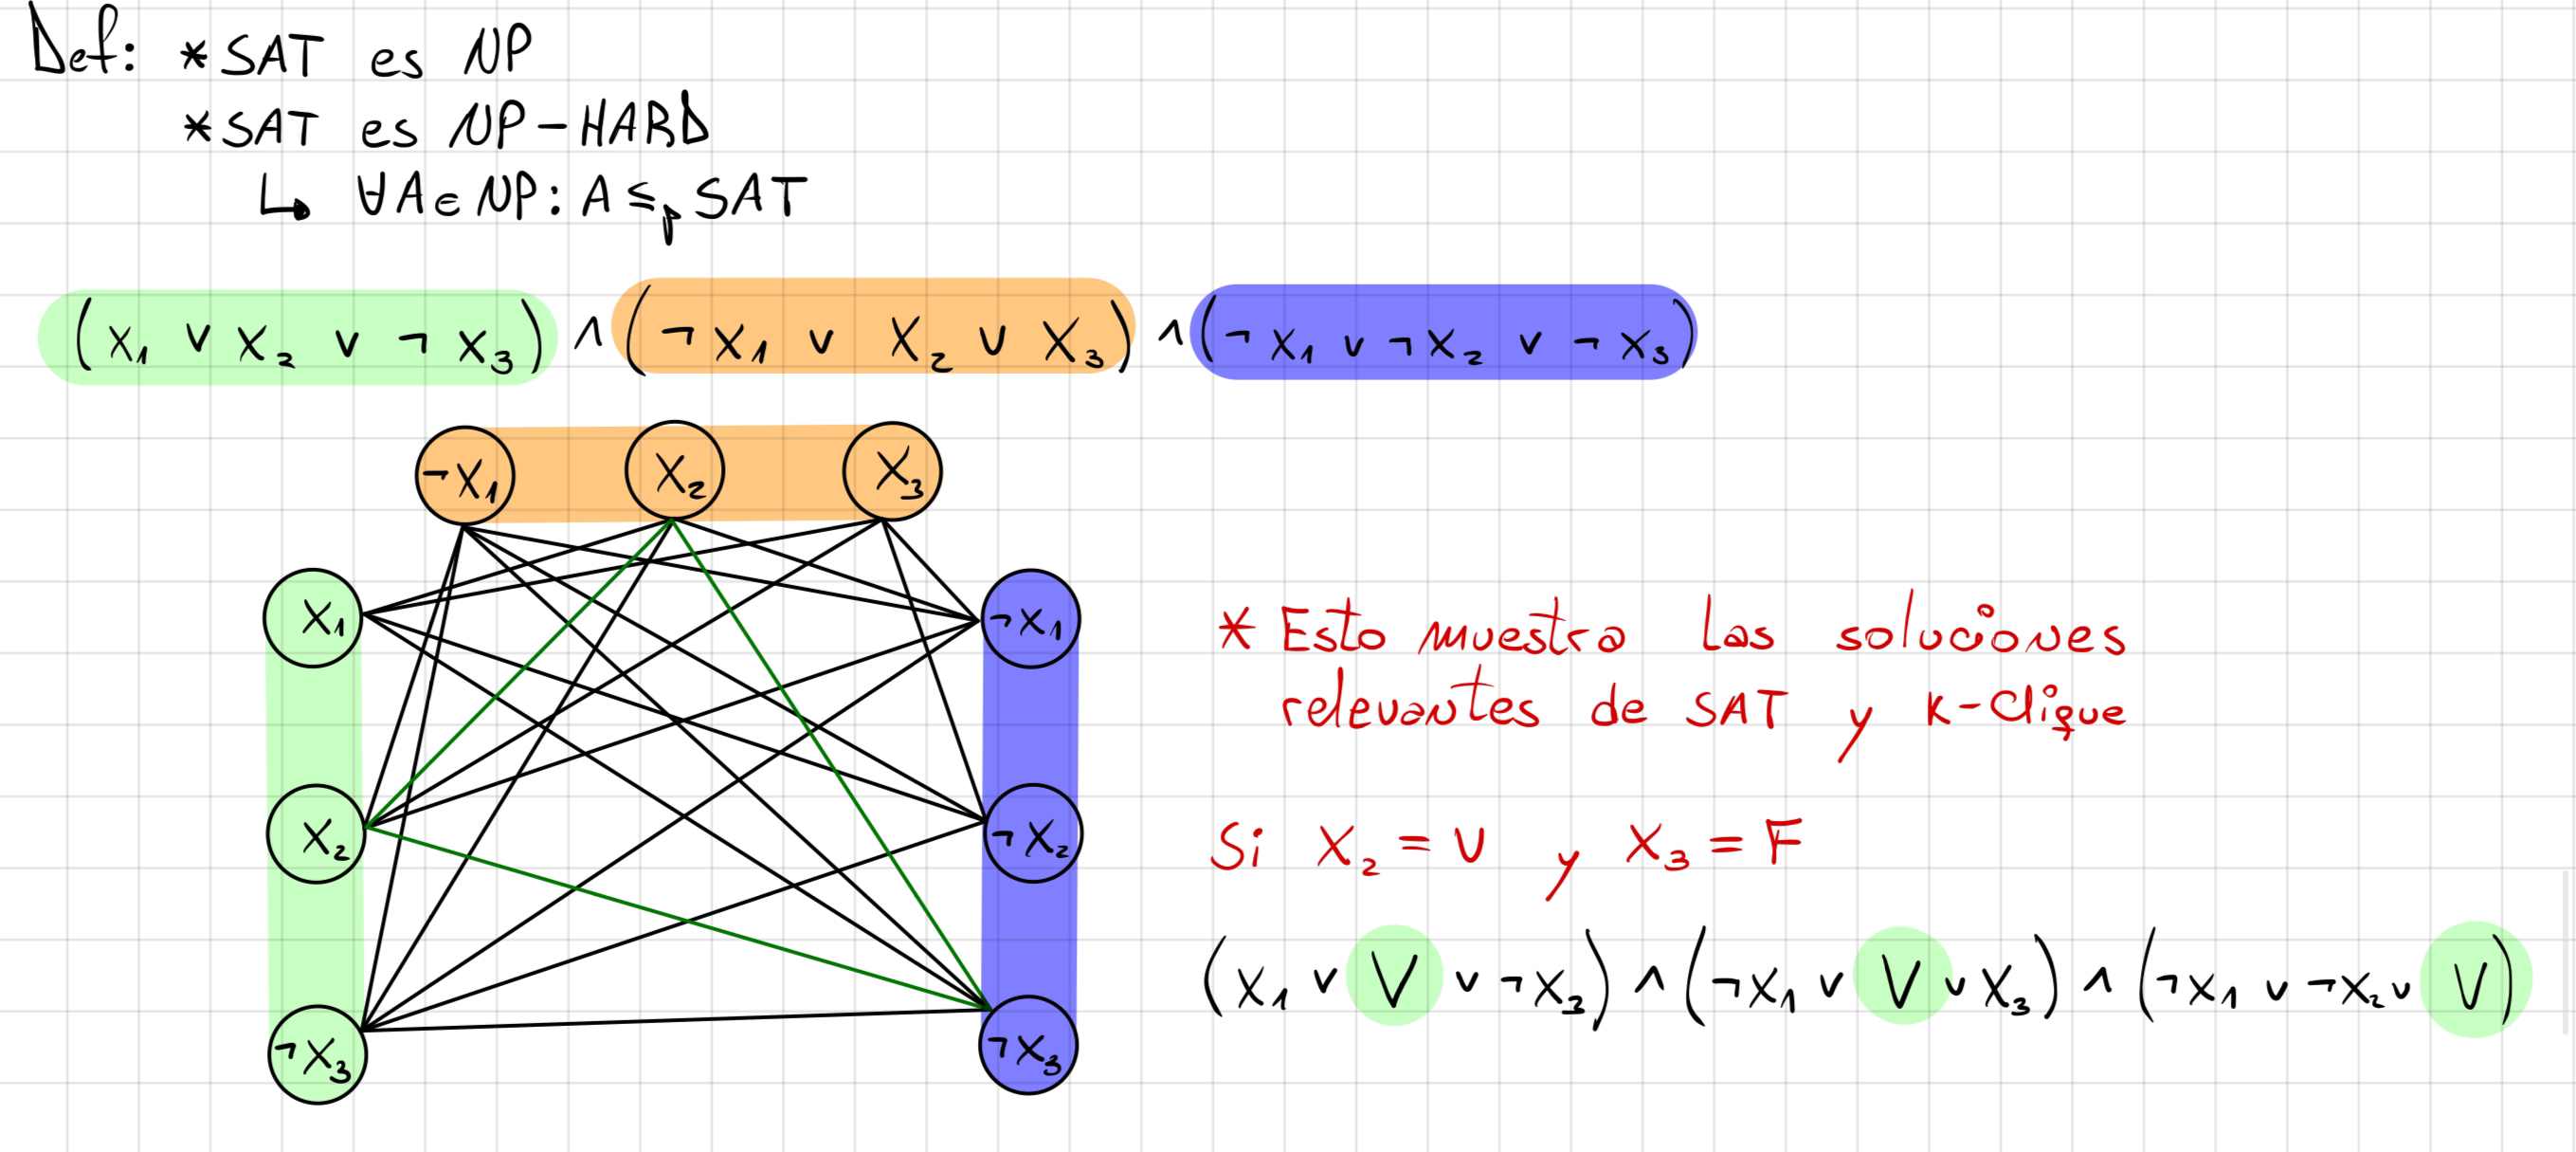 Def: *SAT es NP
*SAT es NP-HARD
↳ ∀A∈NP: A ≤p SAT
(x₁ ∨ x₂ ∨ ¬x₃) ∧ (¬x₁ ∨ x₂ ∨ x₃) ∧ (¬x₁ ∨ ¬x₂ ∨ ¬x₃)
¬x₁ x₂ x₃
x₁ ¬x₁
* Esto muestra las soluciones
relevantes de SAT y K-Clique
x₂ ¬x₂
Si x₂ = V y x₃ = F
(x₁ ∨ V ∨ ¬x₃) ∧ (¬x₁ ∨ V ∨ x₃) ∧ (¬x₁ ∨ ¬x₂ ∨ V)
¬x₃ ¬x₃